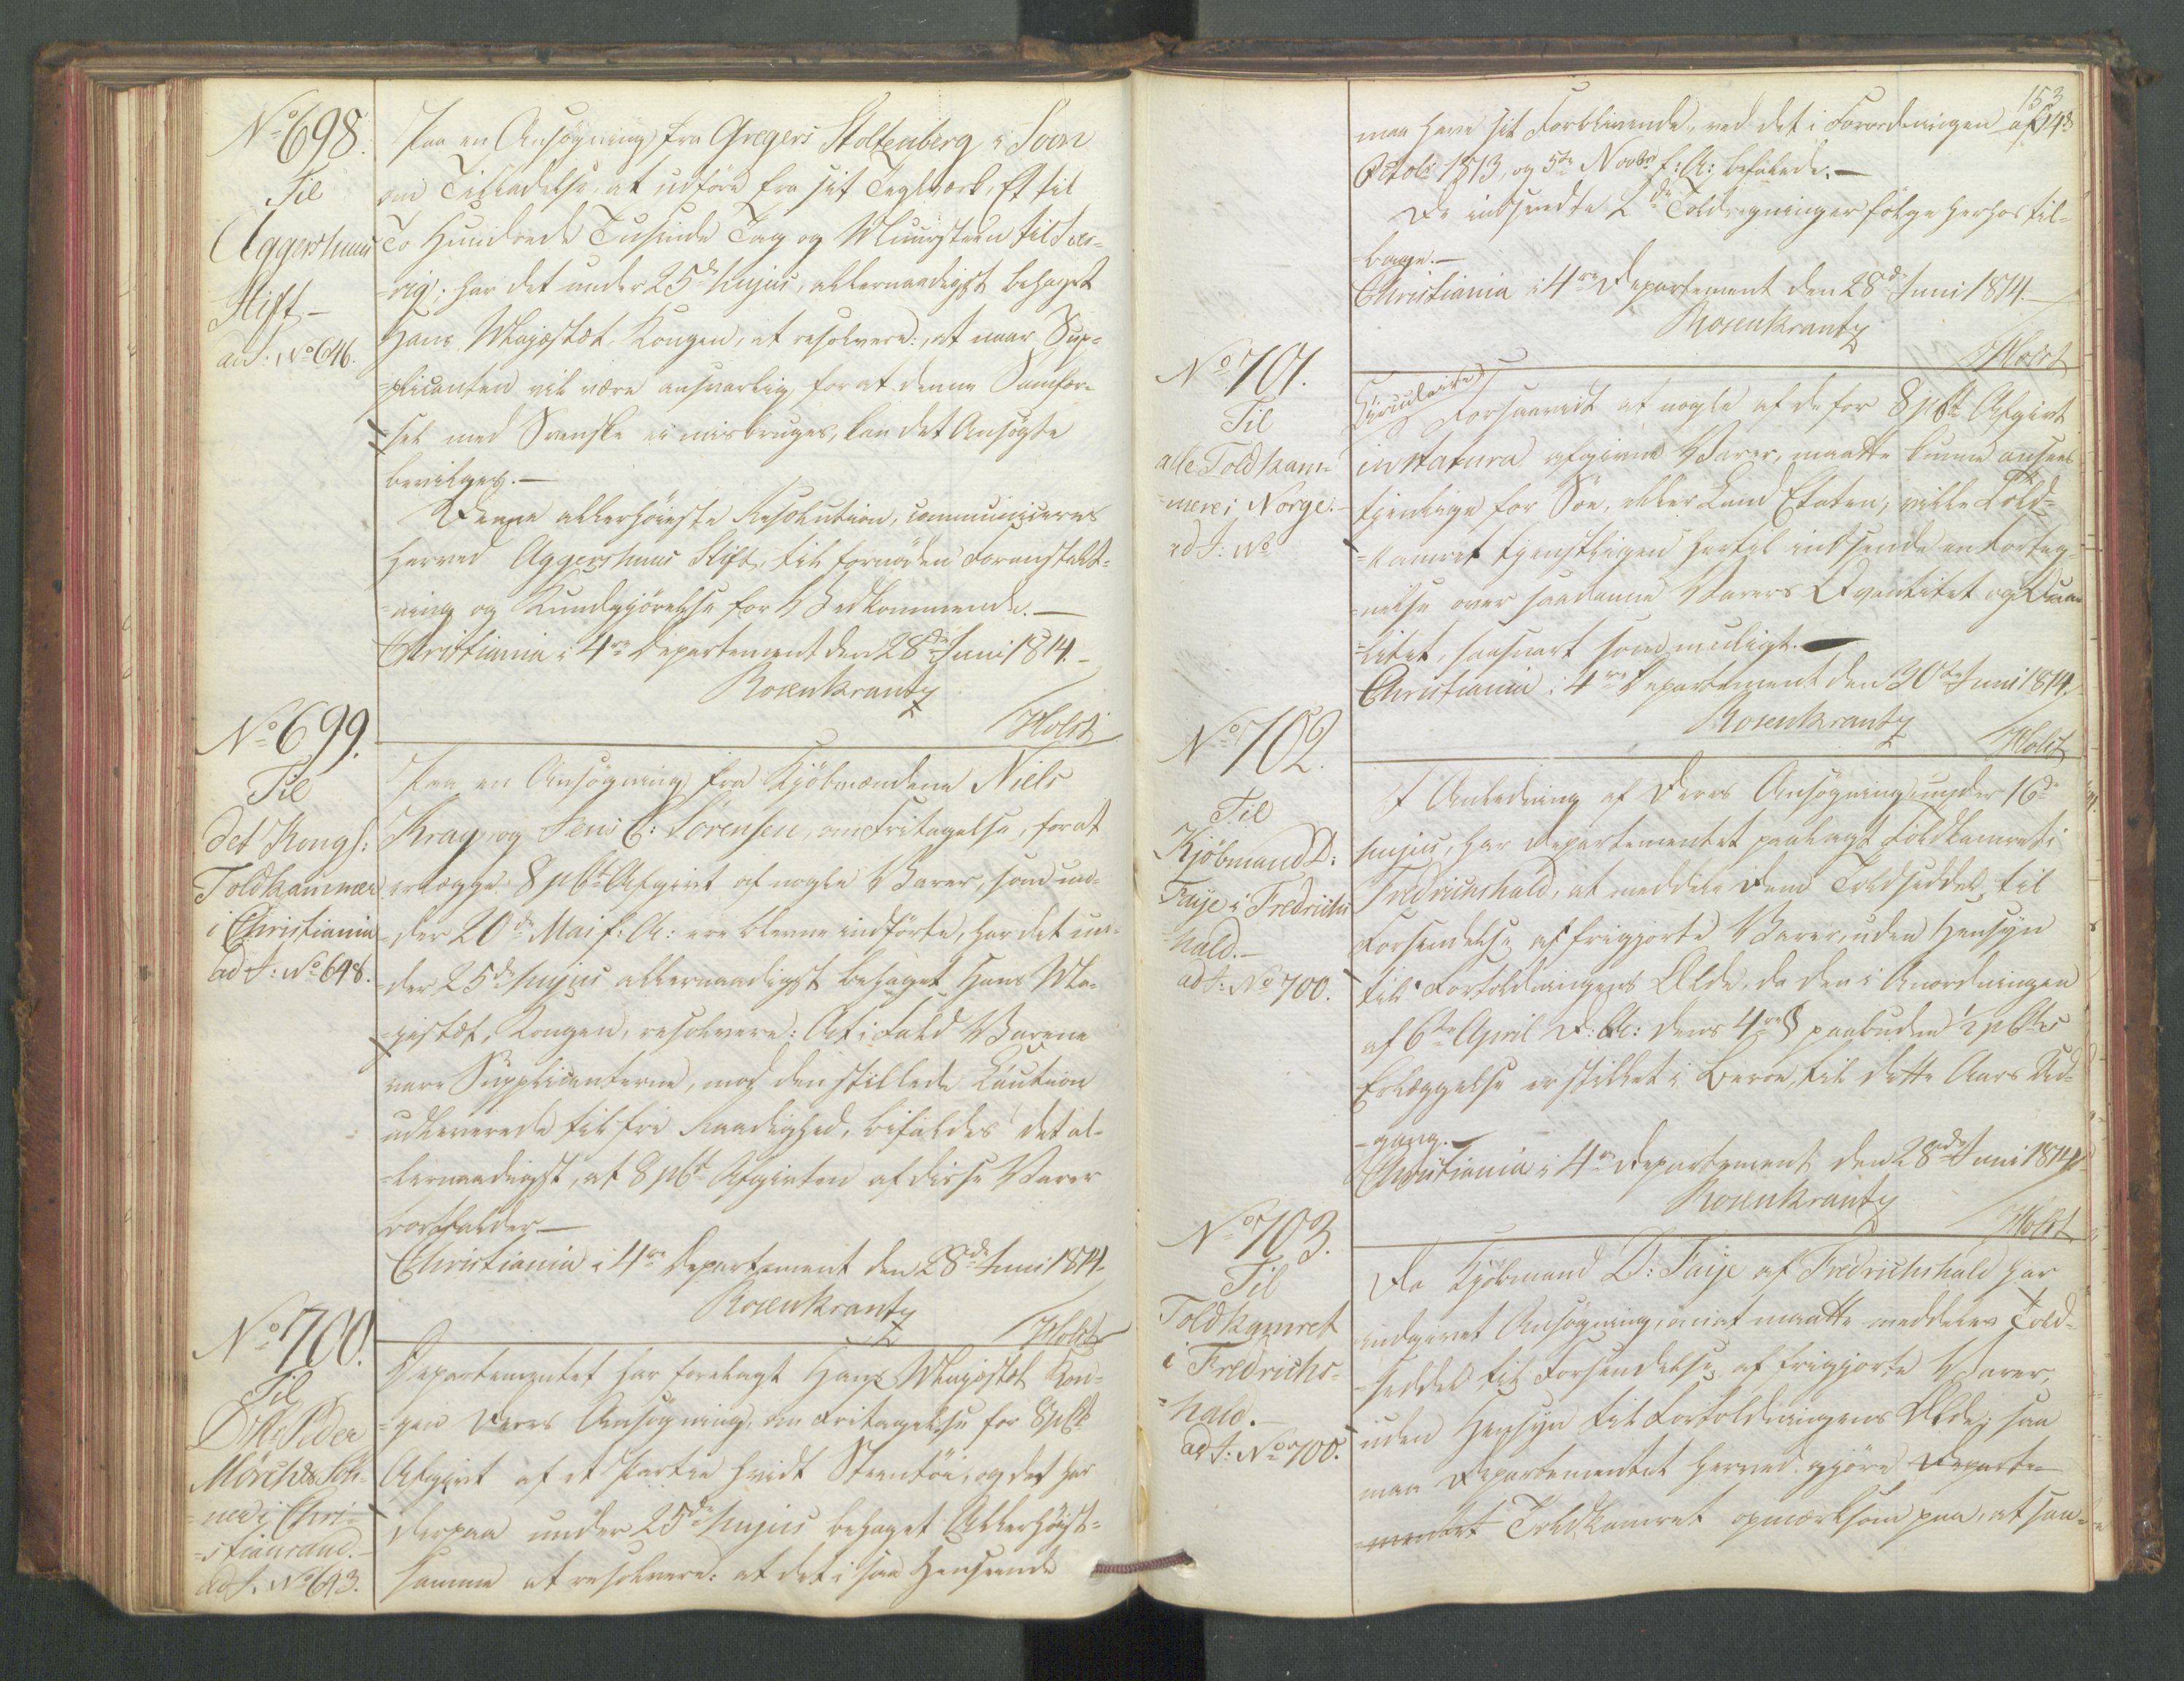 No 698.
Til
Aggershuus
Stift.-
ad J: No 646.
Paa en Ansøgning fra Gregers Stoltenberg i Soon
om Tilladelse, at udføre fra sit Teglverk, Et til
To Hundrede Tusinde Tag og Muursteen til Sver-
=rig; har det under 25de hujus, allernaadigst behaget
Hans Majestæt Kongen, at resolvere: at naar Sup=
=plicanten vil være ansvarlig for at denne Samfær-
sel med Svenske ei misbruges, kan det Ansøgte
bevilges.-
Denne allerhøieste Resolution, communiceres
herved Aggershuus Stift, til fornøden Foranstalt=
=ning og Kundgjørelse for Vedkommende.-
Christiania i 4re Departement den 28de Juni 1814.-
Rosenkrantz
/Holst
No 699.
Til
det Kongl:
Toldkammer
i Christiania
ad J: No 648.
Paa en Ansøgning fra Kjøbmændene Niels
Krag og Jens C: Sørensen, om Fritagelse, for at
erlægge 8 pCt Afgivt af nogle Varer, som un-
=der 20de Mai f: A: ere blevne indførte, har det un-
=der 25de hujus allernaadigst behaget Hans Ma-
=jestæt, Kongen, resolvere: At i Fald Varene
vare Supplicanterne, mod den stillede Caution
udleverede til fri Raadighed, bifaldes det al-
=lernaadigst, at 8 pCt Afgivten af disse Varer
bortfalder.-
Christiania i 4re Departement den 28de Juni 1814.
Rosenkrantz
/Holst
No 700.
Til
Dhrr Peder
Mörch & Søn-
=ner i Chri-
=stiansand.-
ad J: No 693.
Departementet har forelagt Hans Majestæt Kon=
=gen Deres Ansøgning, om Fritagelse for 8 pCt
Afgivt af et Partie hvidt Steentøi, og det har
derpaa under 25de hujus behaget Allerhøist=
samme at resolvere: at det i saa Henseende
153
maa have sit Forblivende, ved det i Forordningen af 14de
Octob: 1813, og 5te Novbr f: A: befalede.-
De indsendte 2de Toldregninger følge herhos til=
=bage.-
Christiania i 4re Departement den 28de Juni 1814.-
Rosenkrantz
/Holst
No 701.
Til
alle Toldkam=
=mere i Norge.-
ad J: No
Circulaire
Forsaavidt at nogle af de for 8 pCt Afgivt
in Natura afgivne Varer, maatte kunne ansees
tjenlige for Søe, eller Land Etaten, ville Told=
=kamret tjenstligen hertil indsende en Forteg-
=nelse over saadanne Varers Qvantitet og Qua-
=litet, saasnart som muligt.-
Christiania i 4re Departement den 30te Juni 1814.
Rosenkrantz
/Holst
No 702.
Til
Kjøbmand D:
Faije i Fredrichs
=hald.-
ad J: No 700.
I Anledning af Deres Ansøgning under 16de
hujus, har Departementet paalagt Toldkamret i
Fredrichshald, at meddele Dem Toldseddel til
Forsendelse af frigjorte Varer, uden Hensyn
til Fortoldningens Ælde, da den i Anordningen
af 6te April d: A: dens 4re § paabudne ½ pCts
Erlæggelse er stillet i Beroe, til dette Aars Ud-
=gang.-
Christiania i 4re Departement den 28de Juni 1814.
Rosenkrantz
/Holst
No 703.
Til
Toldkamret
i Fredrichs-
=hald.-
ad J: No 700.
Da Kjøbmand D: Faije af Fredrichshald har
indgivet Ansøgning, om at maatte meddeles Told-
=seddel til Forsendelse af frigjorte Varer,
uden Hensyn til Fortoldningens Ælde; saa
maa Departementet herved gjøre Departe-
=mentet Toldkamret opmærksom paa, at saa-